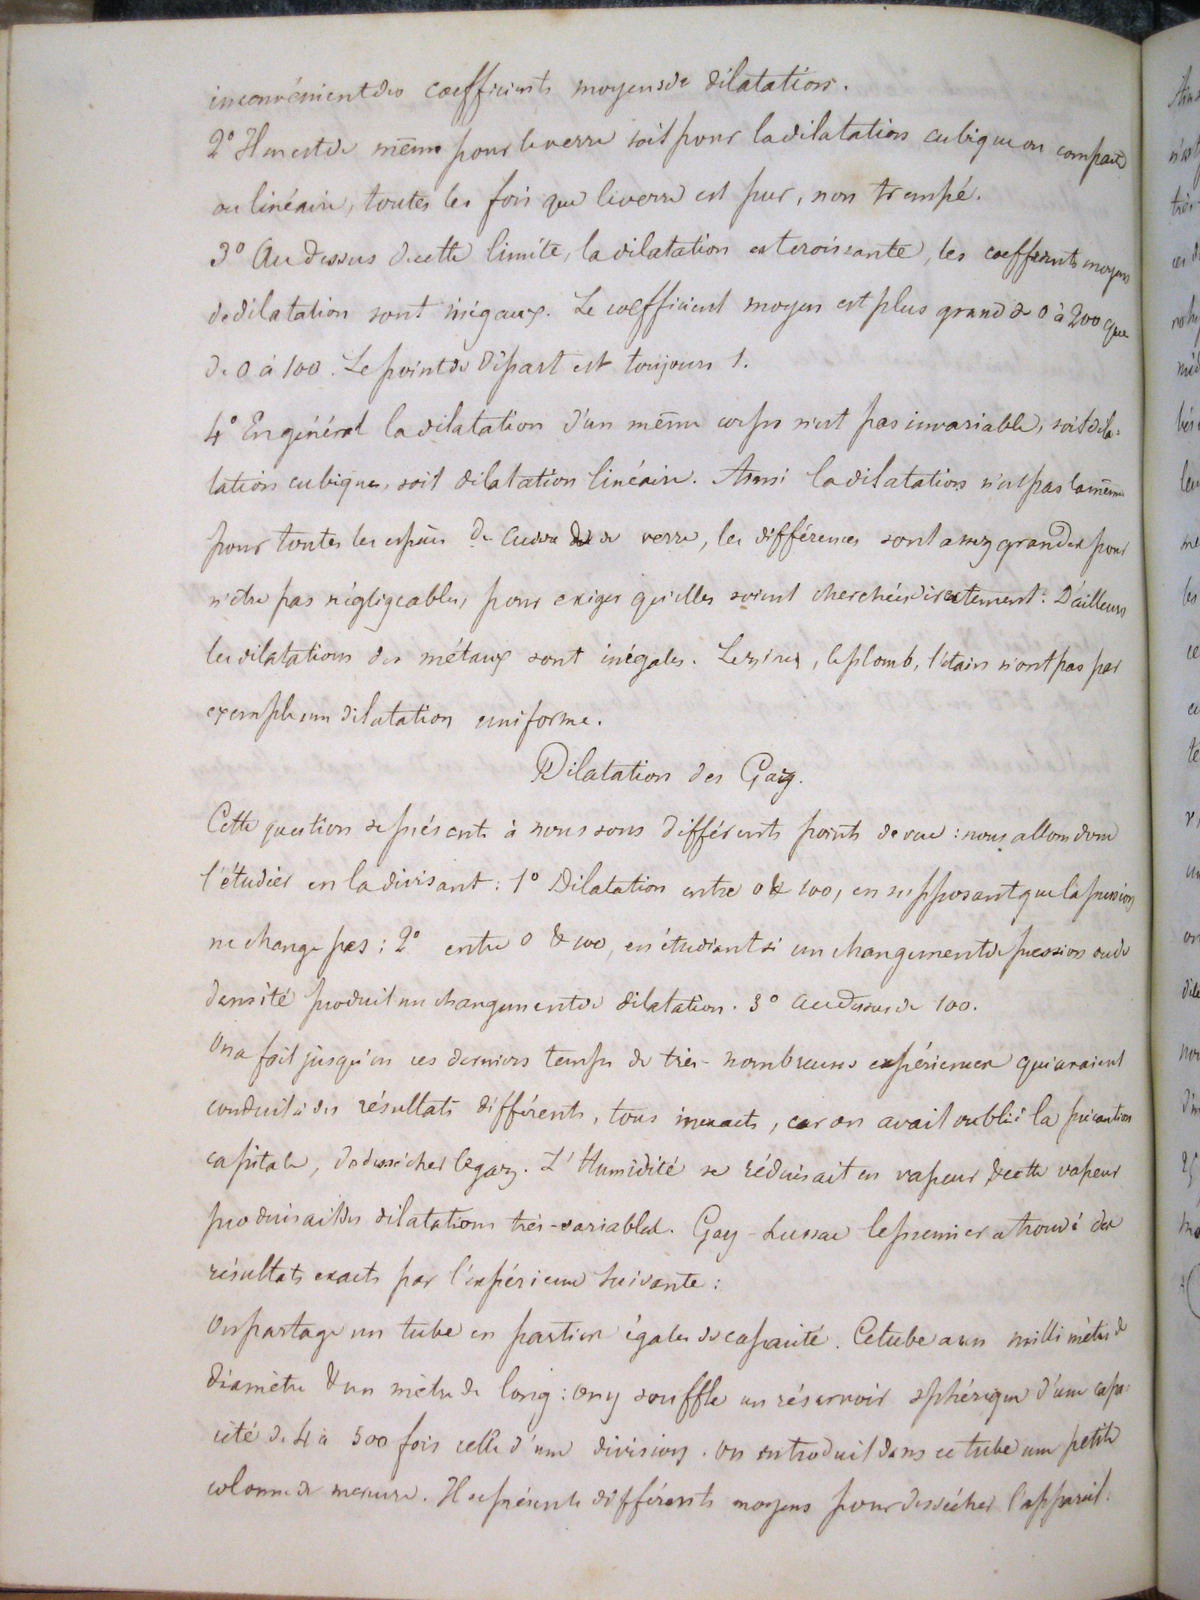 inconvénient des coefficients moyens de dilatation.
2° Il en est de même pour le verre soit pour la dilatation cubique ou
ou linéaire, toutes les fois que le verre est pur, non trempé.
3° Au dessus de cette limite, la dilatation est croissante, les coefficients moyens
de dilatation sont inégaux. Le coefficient moyen est plus grand de 0 à 200 que
de 0 à 100. Le point de départ est toujours 1.
4° En général la dilatation d'un même corps n'est pas invariable, soit dila-
tation cubique, soit dilatation linéaire. Ainsi la dilatation n'est pas la même
pour toutes les espèces de de verre, les différences sont assez grandes pour
n'être pas négligeables, pour exiger qu'elles soient cherchées directement. D'ailleurs
les dilatations des métaux sont inégales. Le zinc, le plomb, l'étain n'ont pas par
exemple une dilatation uniforme.
Dilatation des Gaz.
Cette question se présente à nous sous différents points de vue : nous allons donc
l'étudier en la divisant : 1° Dilatation entre 0 & 100, en supposant que la pression
ne change pas ; 2° entre 0 & 100, en étudiant si un changement de pression ou de
densité produit un changement de dilatation. 3° Au dessus de 100.
On a fait jusqu'en ces derniers temps de très-nombreuses expériences qui avaient
conduit à des résultats différents, tous inexacts, car on avait oublié la précaution
capitale, de dessécher le gaz. L'Humidité se réduisait en vapeur & cette vapeur
produisait des dilatations très-variables. Gay-Lussac le premier a trouvé des
résultats exacts par l'expérience suivante :
On partage un tube en parties égales de capacité. Ce tube a un millimètre de
diamètre & un mètre de long : on y souffle un réservoir sphérique d'une capa-
cité de 4 à 500 fois celle d'une division. On introduit dans ce tube une petite
colonne de mercure. Il se présente différents moyens pour dessécher l'appareil.